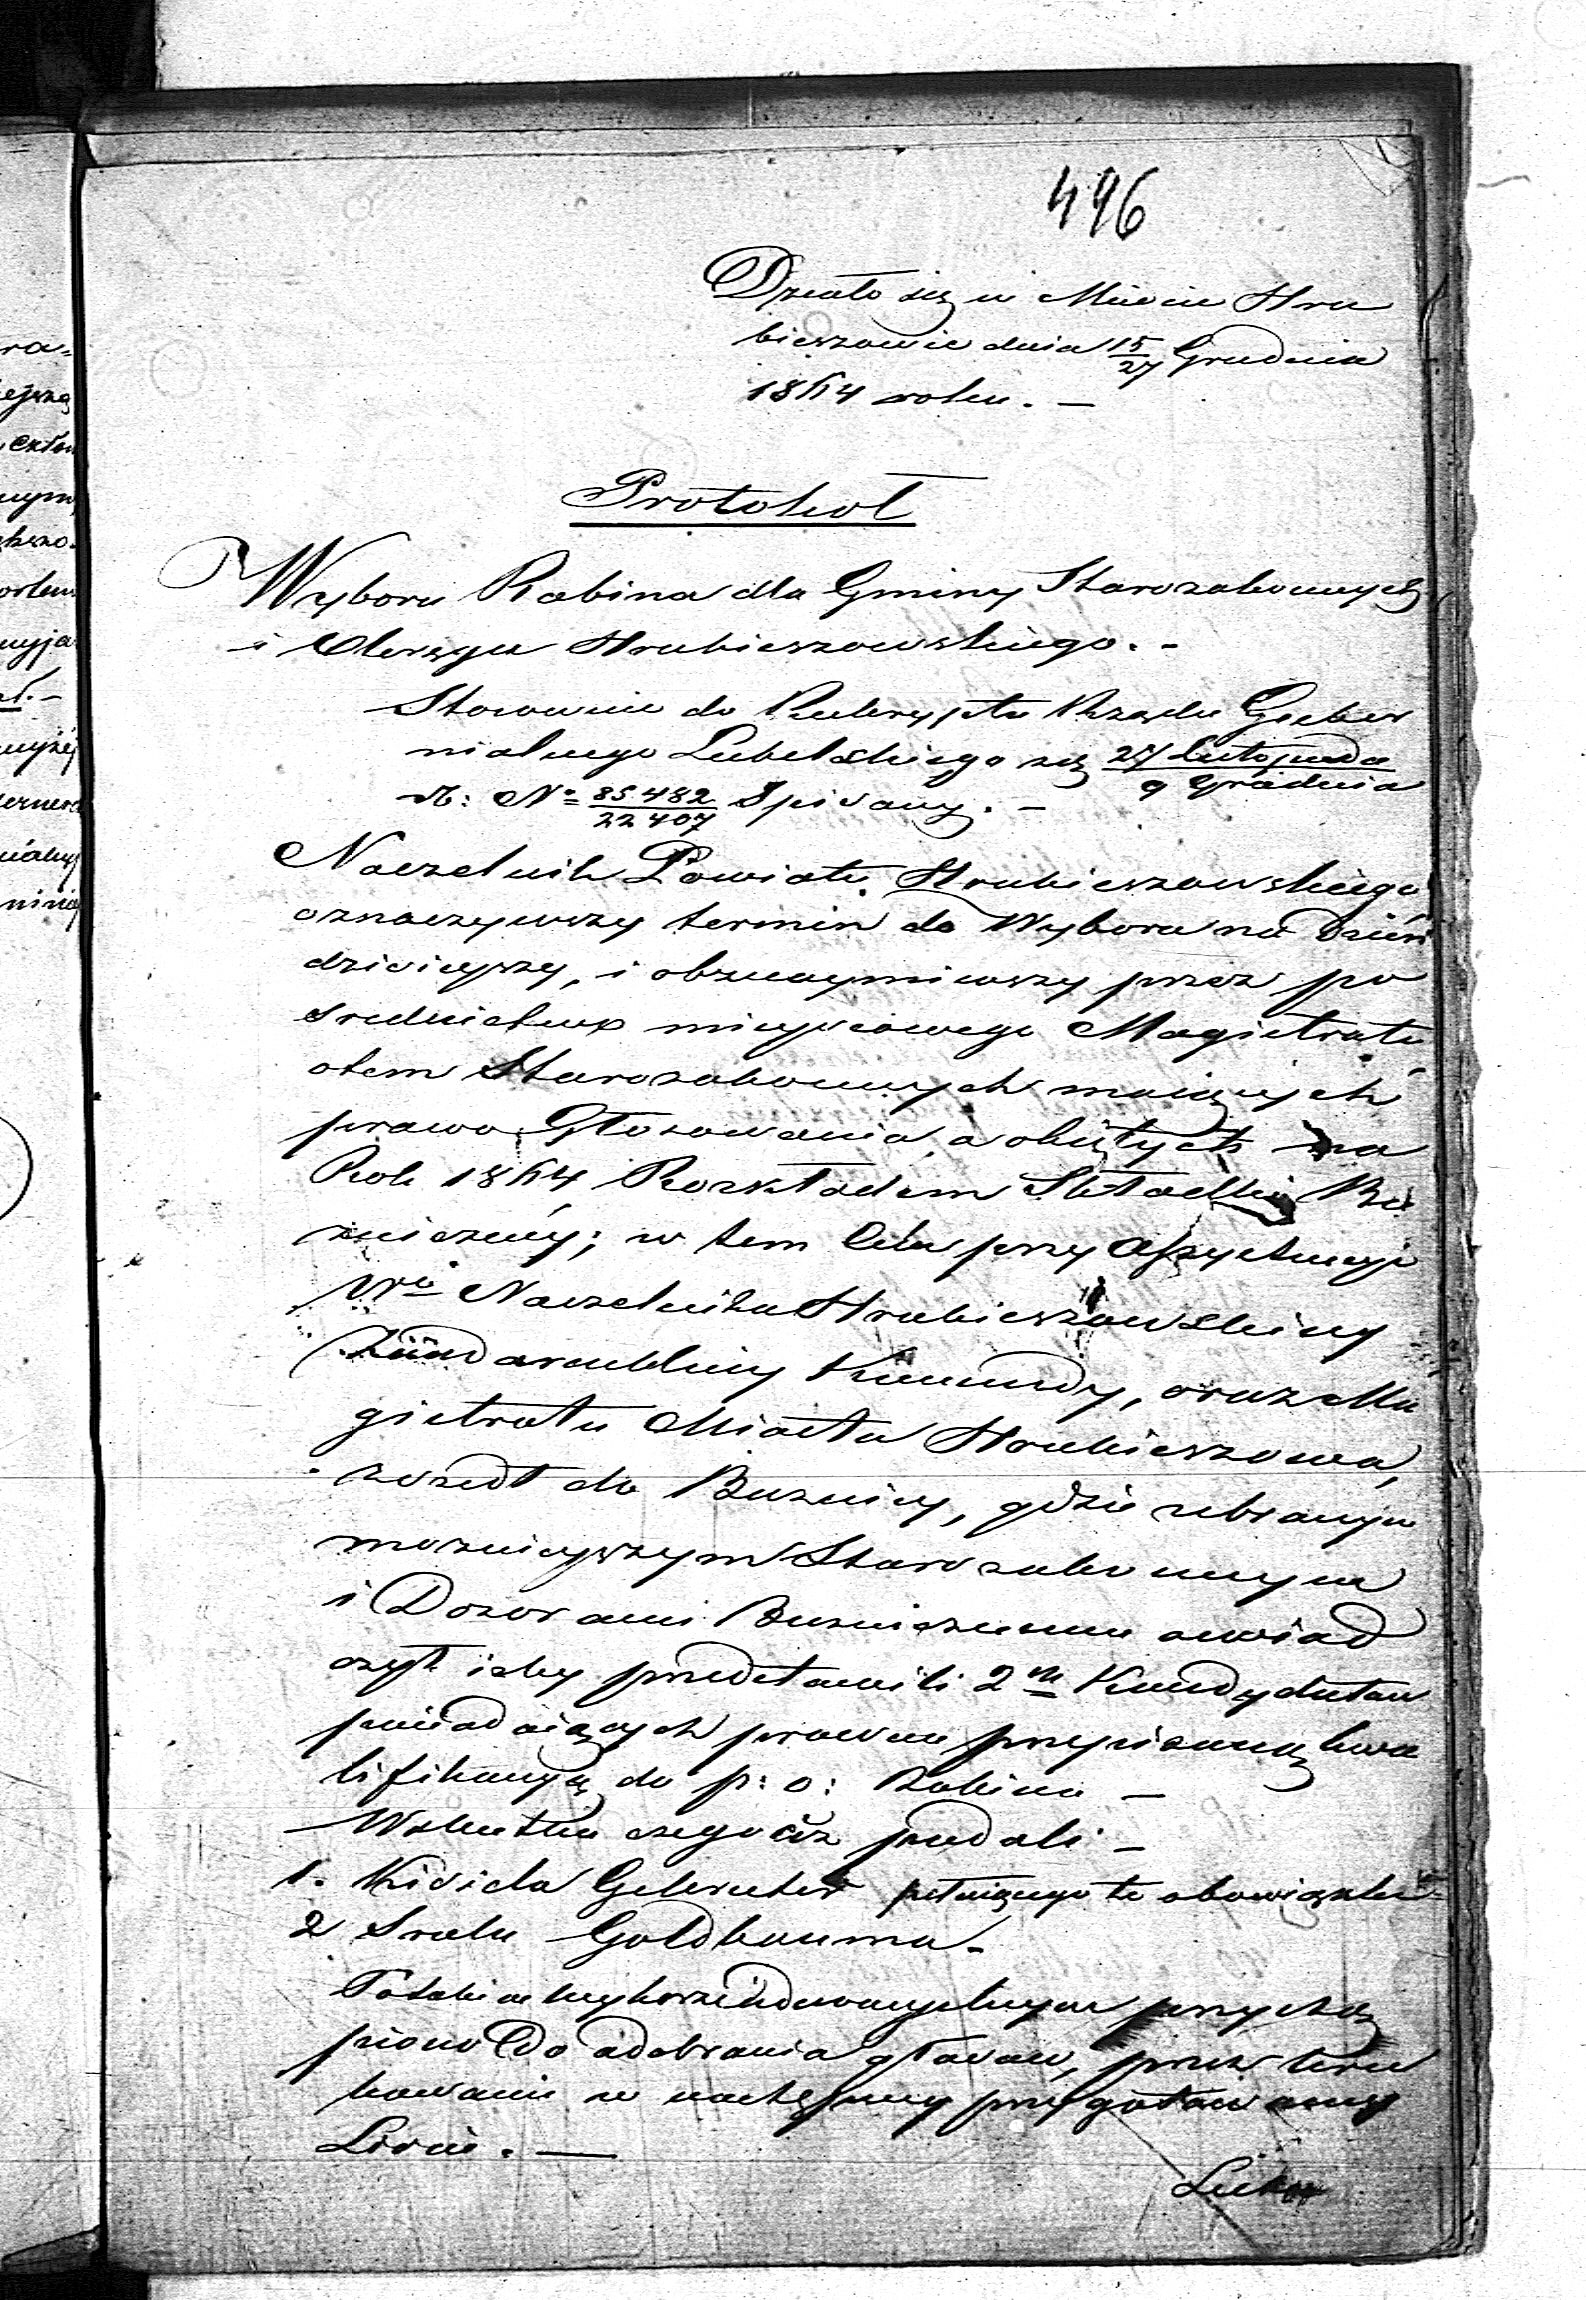 496
Działo się w Mieście Hru
bieszowie dnia 15/27 Grudnia
1844 roku. —
Protokół
Wyboru Rabina dla Gminy Starozakonnych
i Okręgu Hrubieszowskiego. -
Stosownie do Reskryptu Rządu Guber
nialnego Lubelskiego z 27 Listopada / 9 Grudnia
r. b: No 85482/22407 Spisany. —
Naczelnik Powiatu Hrubieszowskiego
oznaczywszy termin do Wyboru na dzień
dzisieyszy, i obznaymiwszy przez po
srednictwo mieyscowego Magistratu
otem Starozakonnych maiących
prawo Głosowania, a obiętych na
Rok 1844 Rozkładem Składki Bu
zniczney; w tem Celu przy Assystencyi
Wo Naczelnika Hrubieszowskiey
Żandarmskiey Kommendy, oraz Ma
gistratu Miasta Hrubieszowa,
zeszedł do Buznicy, gdzie zebranym
moznieyszym Starozakonnym
i Dozorowi Buzniczemu oswiad
czył izby przedstawili 2ch Kandydatow
posiadaiących prawem przepisaną kwa
lifikacyą do p: o: Rabina —
W skutku czego óż podali —
1. Kisiela pełniącego te obowiązki
2 Srula Goldbauma.
Potakim przystą
piono do odebrania głosow, przez
w następney przygotowaney
Liscie. —